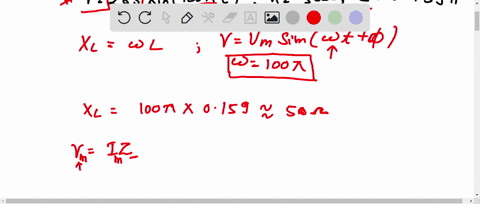 X_L = ωL ; V = Vm Sim(ωt+φ)
ω = 100π
X_L = 100π × 0.159 ≈ 50Ω
Vm = Im Z